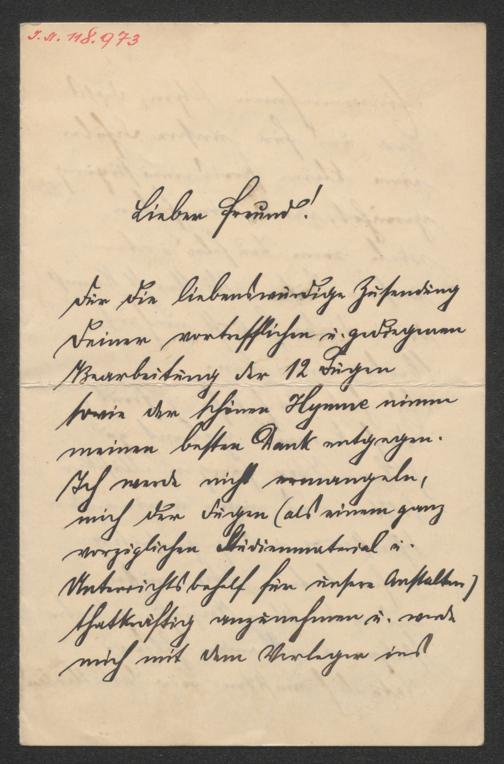 I.N. 118.973
Lieber Freund!
Für die liebenswürdige Zusendung
Deiner vortrefflichen u. gediegenen
Bearbeitung der 12 Fugen
sowie der schönen Hymne nimm
meinen besten Dank entgegen.
Ich werde nicht ermangeln,
mich der Fugen (als einem ganz
vorzüglichen Studienmaterial u.
Unterrichtsbehelf für unsere Anstalten)
thatkräftig anzunehmen u. werde
mich mit dem Verleger ins